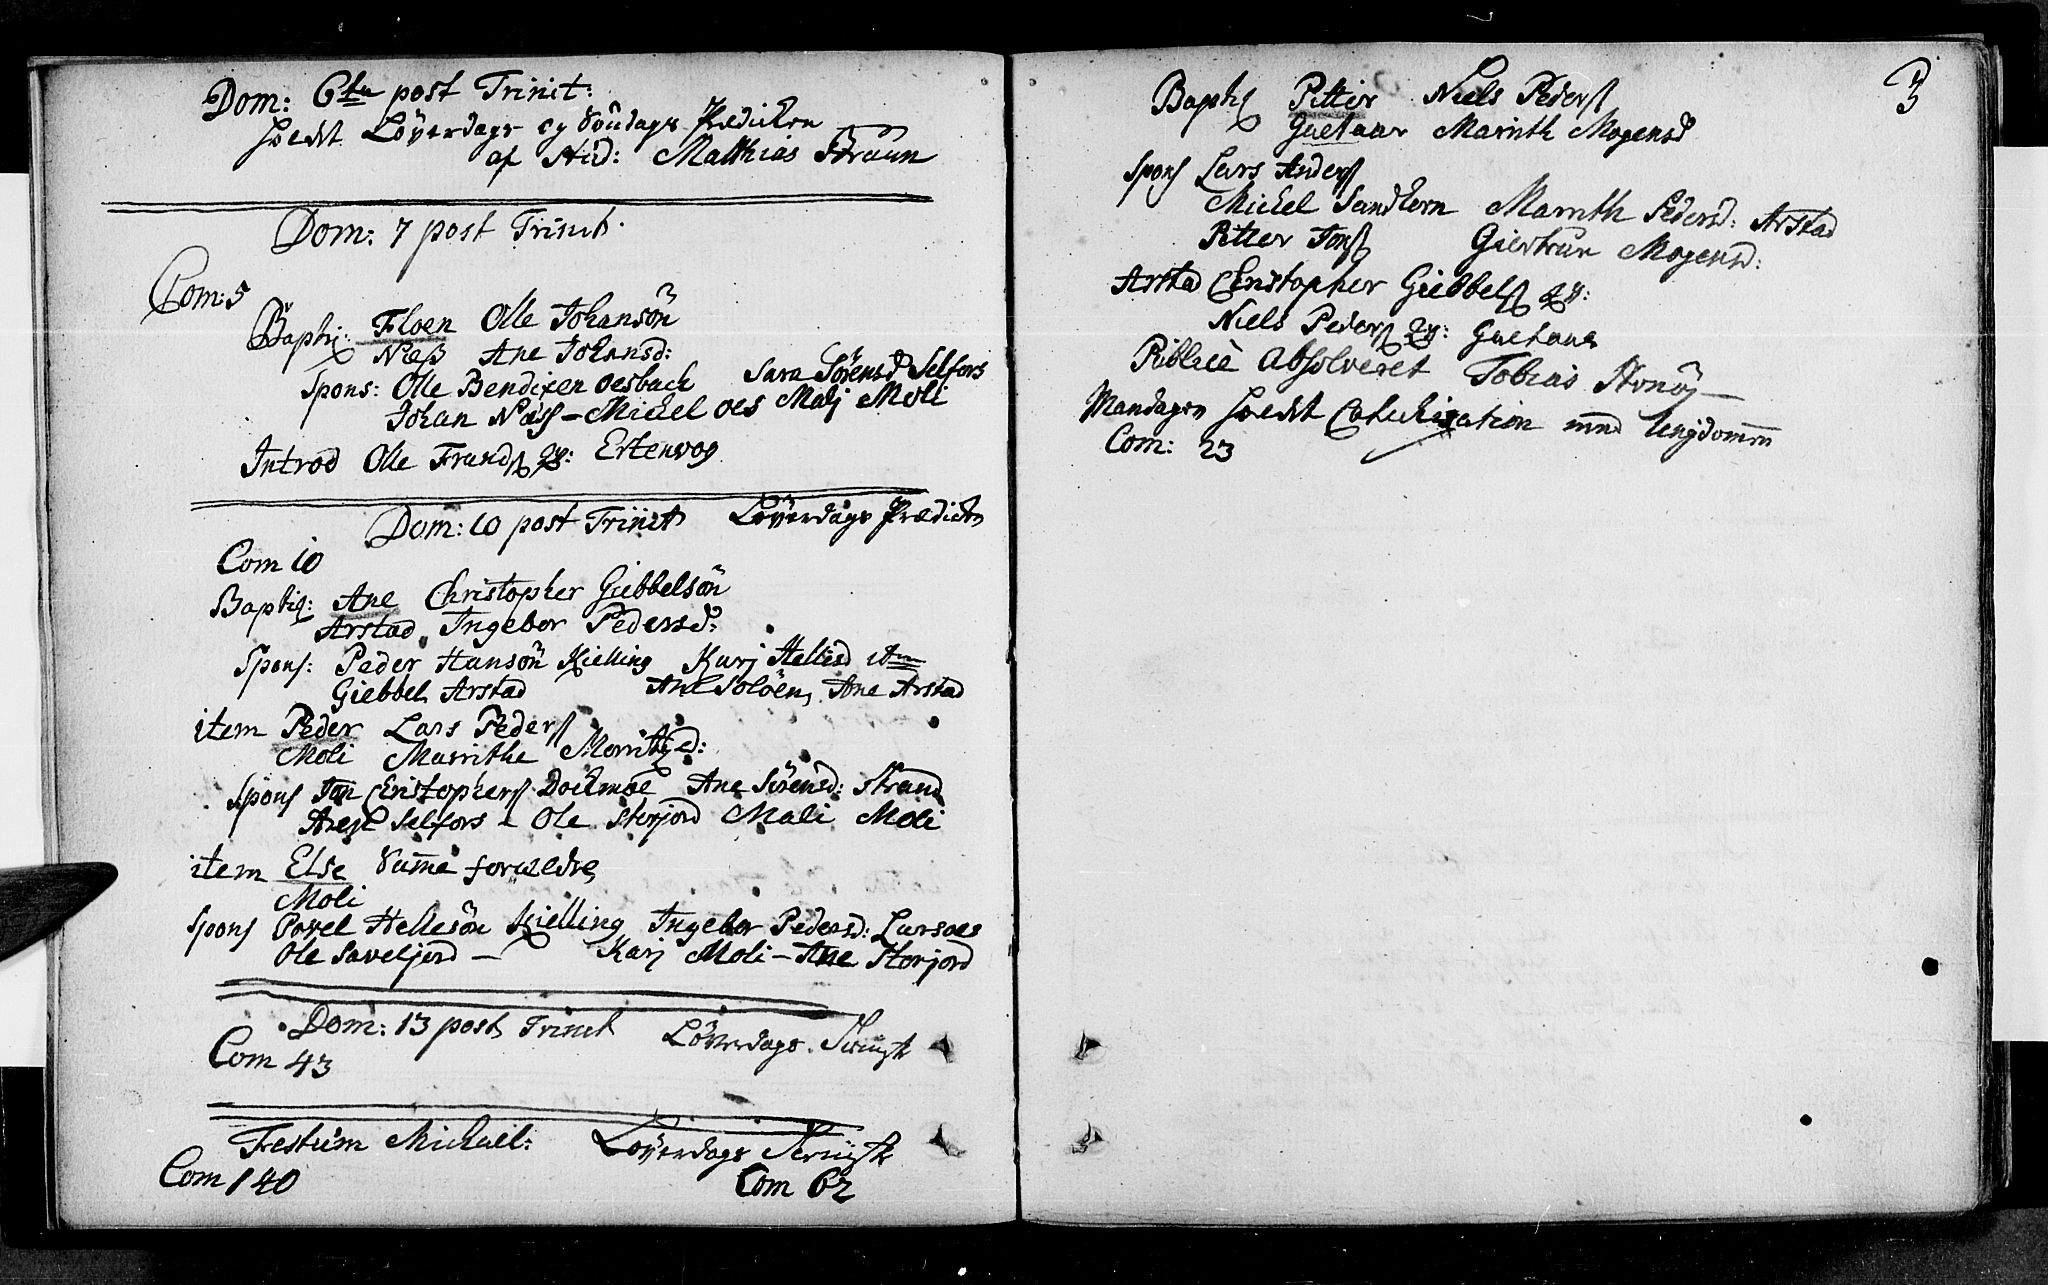 Dom: 6ta post Trinit:
holdt Löverdags og Söndags Prædiken
af Stud: Matthias Bruun
Dom: 7 post Trinit.
Com: 5
Baptiz: Floen Olle Johansön
Næss Ane Johansd:
Spons: Olle Bendixen Oesbach Sara Sörensd Selfors
Johan Næss - Michel Oes Mali Moli
Introd Olle Frands qv: Ertenvog
Dom: 10 post Trinit Löverdags Prædiken
Com 10
Baptiz: Ane Christopher Giebbelsön
Arstad Ingebor Pedersd:
Spons: Peder Hansön Kielling Kari Hellisd ibm
Giebbel Arstad Ane Soløen, Ane Arstad
item Peder Lars Peders
Moli Marrithe Morritzd:
Spons Jon Christophers Dochmoe Ane Sörensd: Strand
Selfors - Ole Storjord Mali Moli
item Else Samme forældre
Moli
Spons Povel Hellesön Kielling Ingebor Pedersd: Larsoes
Ole Saveljord - Kari Moli - Ane Storjord
Dom: 13 post Trinit Löverdags Teniste
Com 43
Festum Michael: Löverdags Teniste
Com 140 Com 62
3
Baptiz Pitter Niels Peders
Marrith Mogensd
Spons Lars Anders
Michel Sandhorn Marrith Pedersd: Arstad
Pitter Jons Giertrun Mogensd:
Arstad Christopher Giebbels qv:
Niels Peders qv:
Publicè Absolveret Tobias
Mandagen holdt Catechisation med Ungdommen
Com: 23